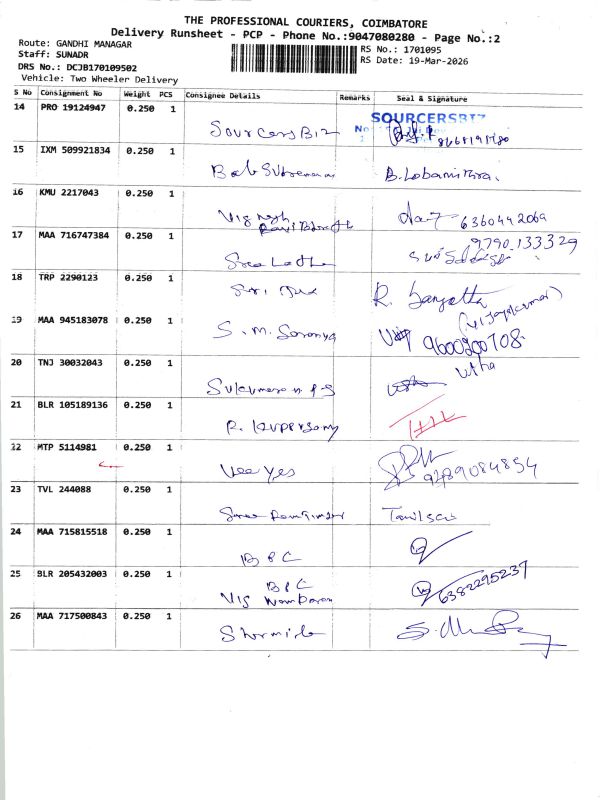 THE PROFESSIONAL COURIERS, COIMBATORE
Delivery Runsheet - PCP - Phone No.:9047080280 - Page No.:2
Route: GANDHI MANAGAR
Staff: SUNADR
DRS No.: DCJB170109502
Vehicle: Two Wheeler Delivery
RS No.: 1701095
RS Date: 19-Mar-2026
S No Consignment No Weight PCS Consignee Details Remarks Seal & Signature
14 PRO 19124947 0.250 1
SourcersBiz SOURCERSBIZ
15 IXM 509921834 0.250 1
B. Lobamithra.
16 KMU 2217043 0.250 1
Vignesh 6360442069
17 MAA 716747384 0.250 1
Sree Latha 9790133329
18 TRP 2290123 0.250 1
R.
19 MAA 945183078 0.250 1
S.M. Saranya 9600200708
20 TNJ 30032043 0.250 1
Sukumaran P S Usha
21 BLR 105189136 0.250 1
R. Kuppusamy
22 MTP 5114981 0.250 1
Vee Yes 9289084854
23 TVL 244088 0.250 1
Tamilselvi
24 MAA 715815518 0.250 1
B & C
25 BLR 205432003 0.250 1
B & C 6382295237
Vig
26 MAA 717500843 0.250 1
Sharmila